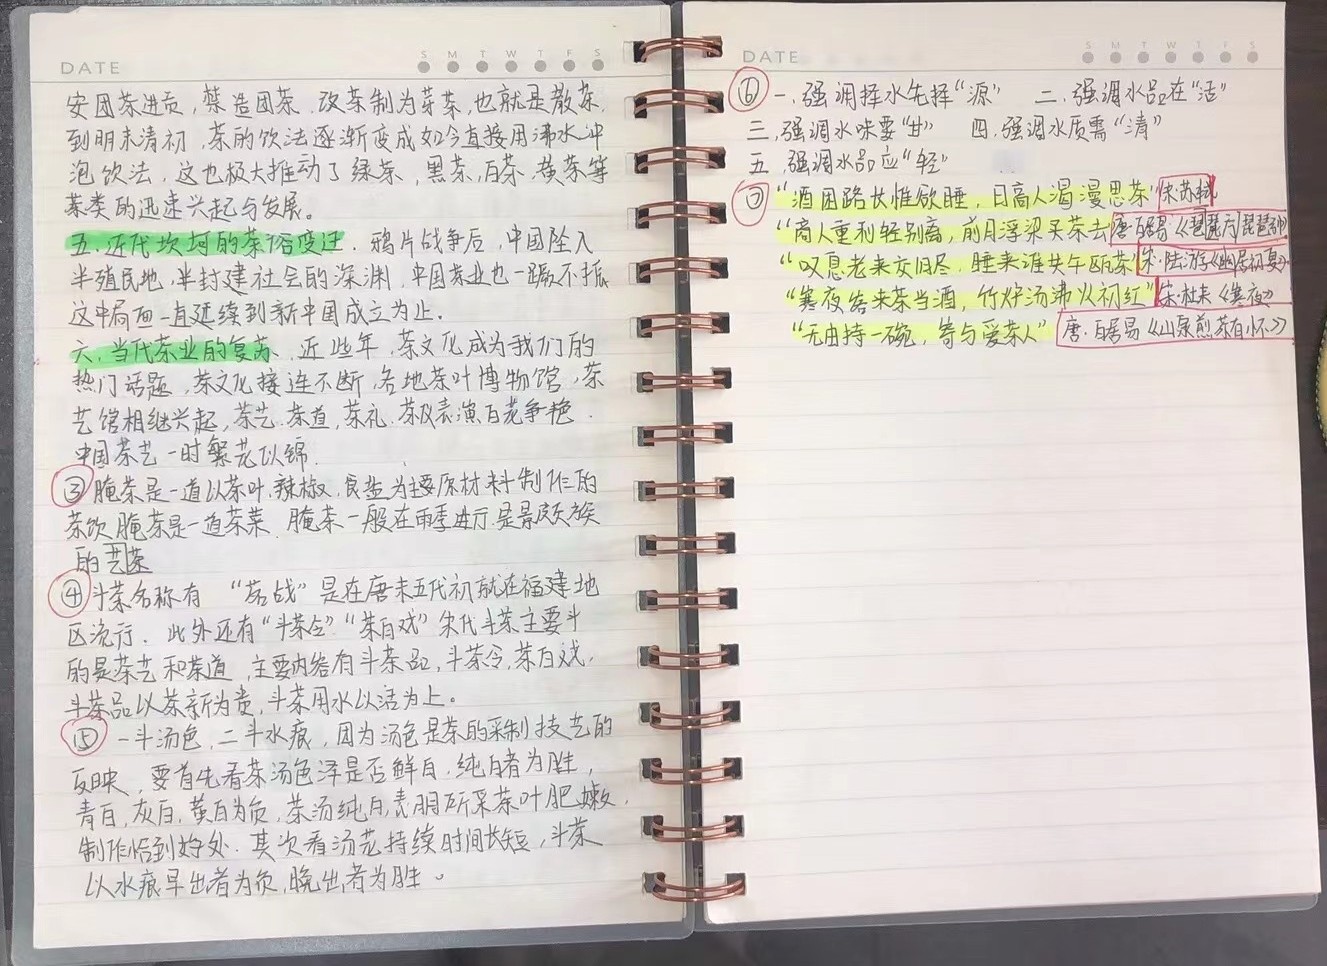 DATE
S M T W T F S
安团茶进贡，禁造团茶，改茶制为芽茶，也就是散茶，
到明末清初，茶的饮法逐渐变成如今直接用沸水冲
泡饮法，这也极大推动了绿茶，黑茶，白茶，黄茶等
茶类的迅速兴起与发展。
五.近代坎坷的茶俗变迁，鸦片战争后，中国坠入
半殖民地，半封建社会的深渊，中国茶业也一蹶不振
这中局面一直延续到新中国成立为止。
六.当代茶业的复苏，近些年，茶文化成为我们的
热门话题，茶文化接连不断，各地茶叶博物馆，茶
艺馆相继兴起，茶艺.茶道，茶礼.茶仪表演百花争艳.
中国茶艺一时繁花似锦.
③腌茶是一道以茶叶.辣椒.食盐为主要原材料制作的
茶饮.腌茶是一道茶菜.腌茶一般在雨季进行.是景颇族
的
④斗茶名称有"茗战"是在唐末五代初就在福建地
区流行.此外还有"斗茶令""茶百戏"宋代斗茶主要斗
的是茶艺和茶道，主要内容有斗茶品，斗茶令，茶百戏.
斗茶品以茶新为贵，斗茶用水以活为上。
⑤一斗汤色，二斗水痕，因为汤色是茶的采制技艺的
反映，要首先看茶汤色泽是否鲜白，纯白者为胜，
青白，灰白，黄白为负，茶汤纯白，表明所采茶叶肥嫩，
制作恰到好处.其次看汤花持续时间长短，斗茶
以水痕早出者为负，晚出者为胜。
DATE
S M T W T F S
⑥一.强调择水先择"源" 二.强调水品在"活"
三.强调水味要"甘" 四.强调水质需"清"
五.强调水品应"轻"
⑦"酒困路长惟欲睡，日高人渴漫思茶"宋苏轼
"商人重利轻别离，前月浮梁买茶去"唐·白居易《琵琶行
"叹息老来交旧尽，睡来谁共午瓯茶"宋·陆游《幽居初夏》
"寒夜客来茶当酒，竹炉汤沸火初红"宋·杜耒《寒夜》
"无由持一碗，寄与爱茶人"唐·白居易《山泉煎茶有怀》